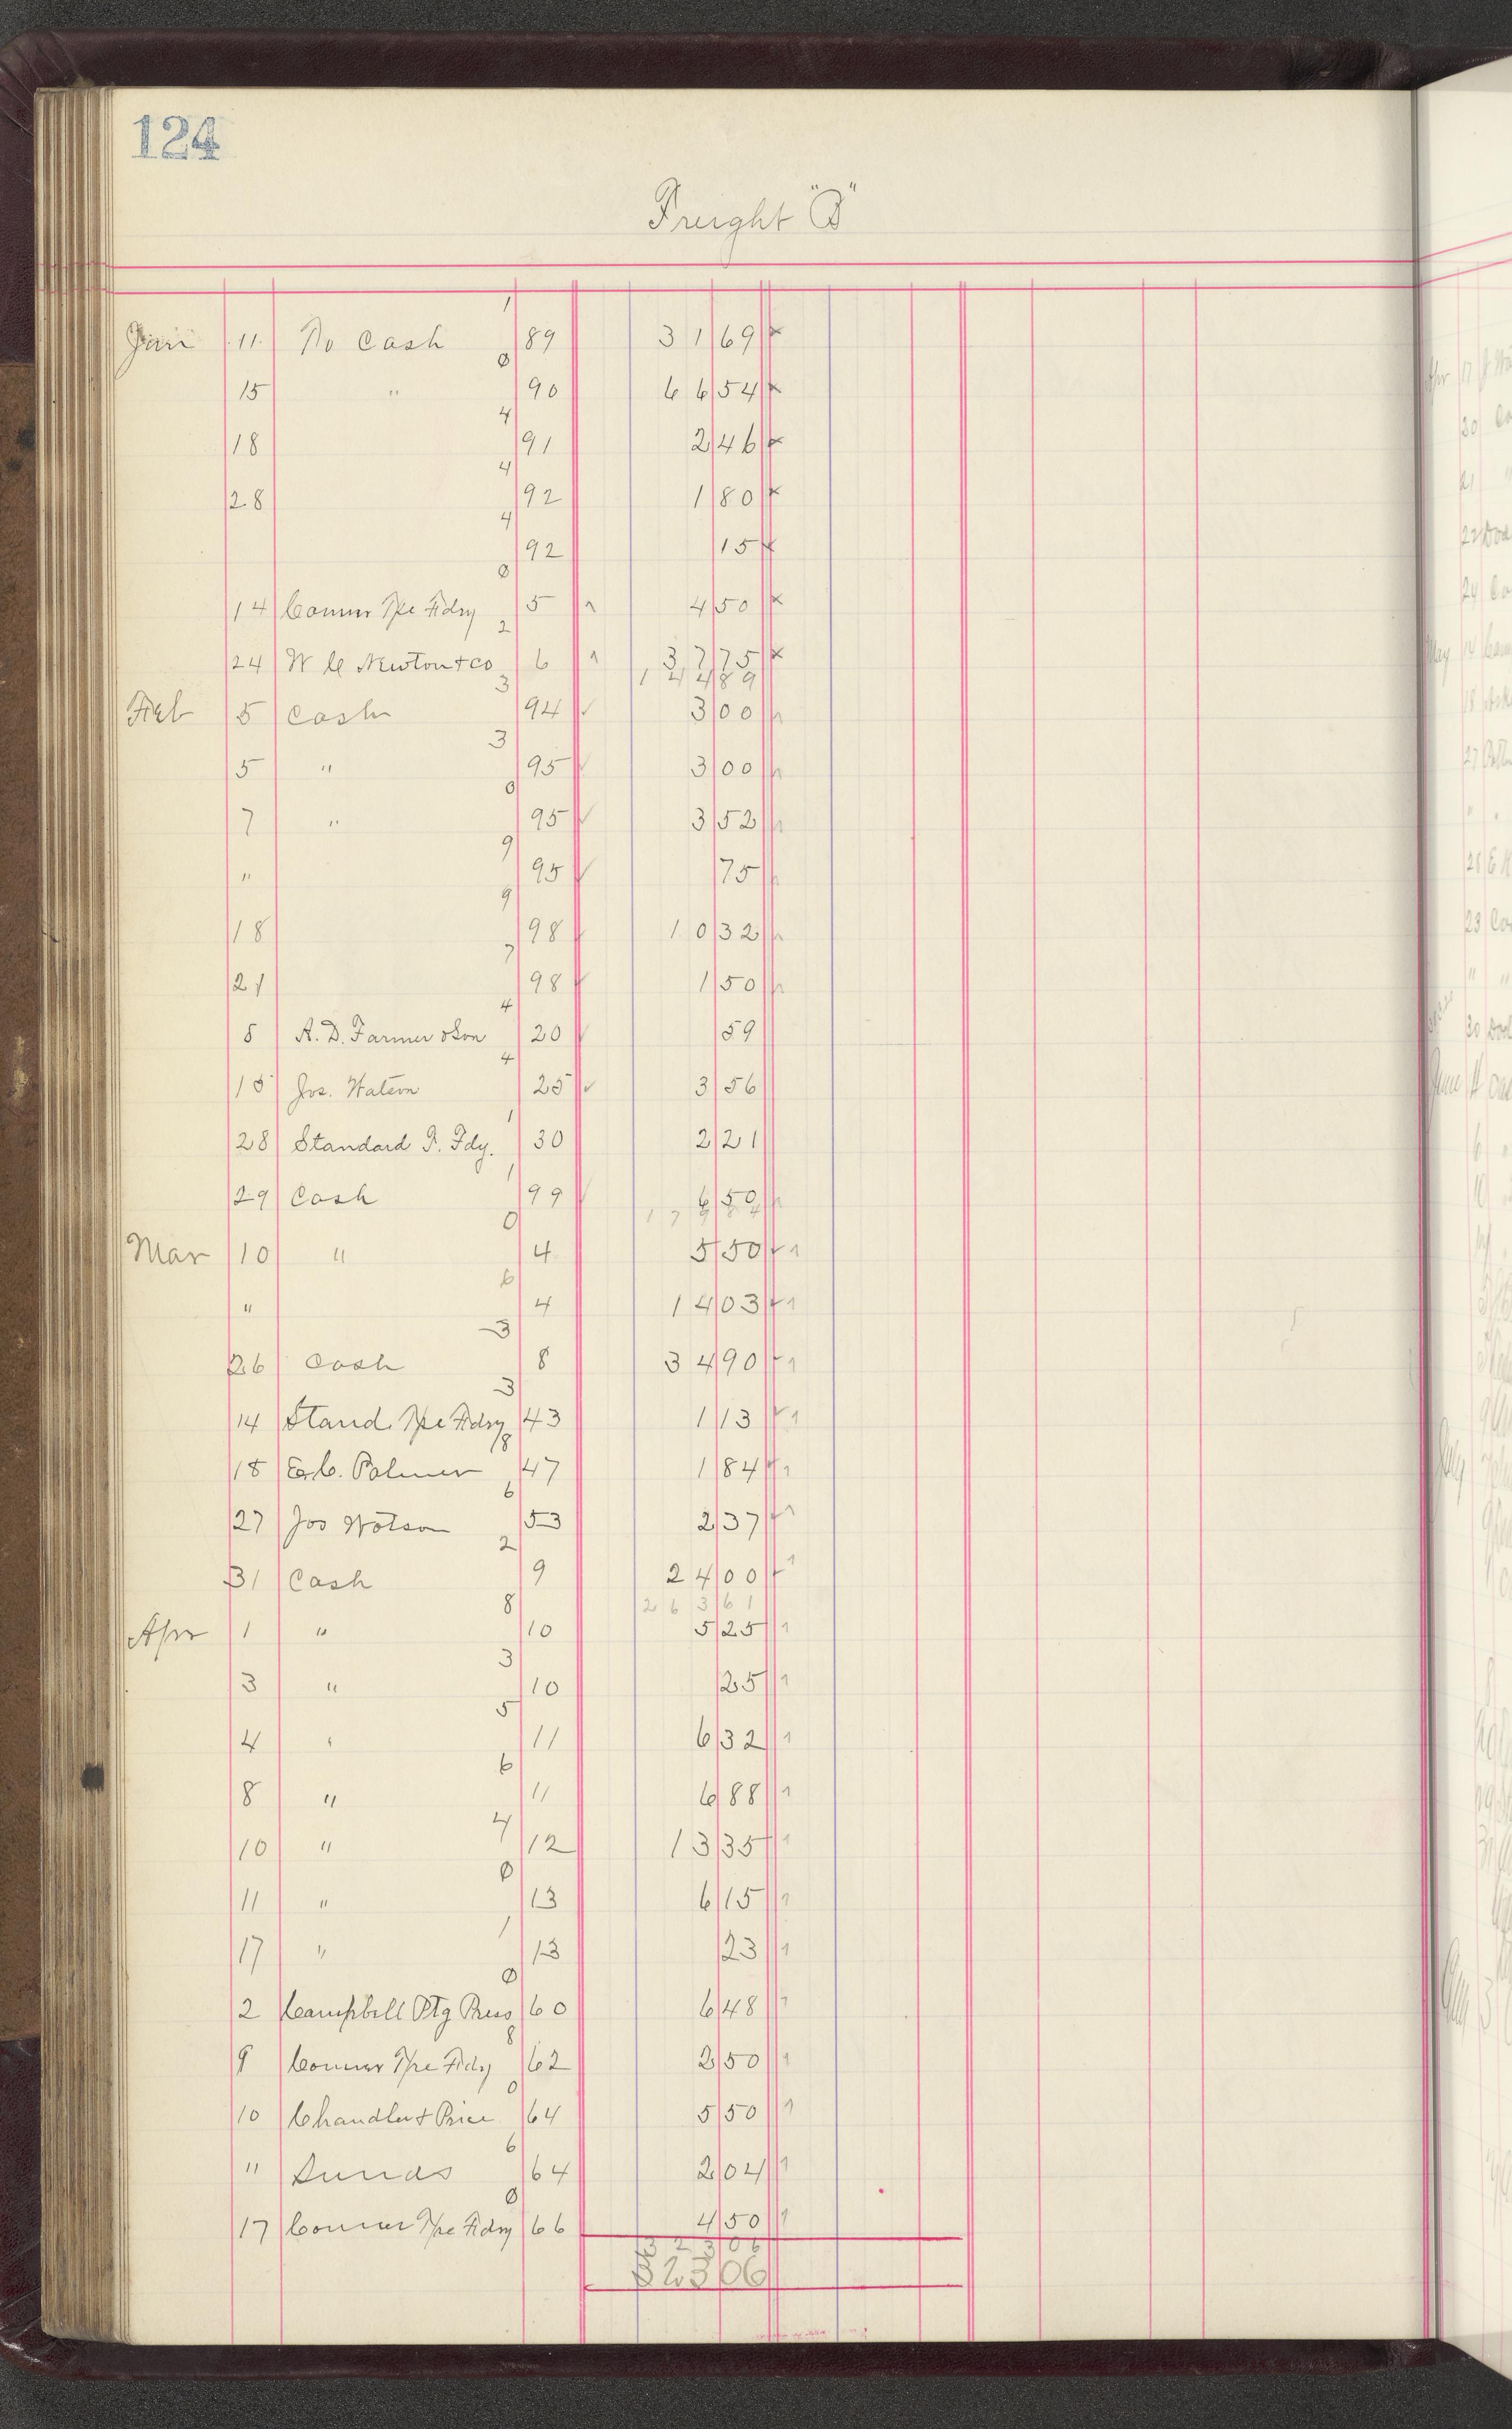 124
Freight "B"
1
Jan 11 To Cash 89 31 69
0
15 " 90 66 54
4
18 91 2 46
4
28 92 1 80
4
92 15
0
14 Conner Tpe Fdry 5 4 50
2
24 W C Newton & Co 6 37 75
144 89
3
Feb 5 Cash 94 3 00
3
5 " 95 3 00
0
7 " 95 3 52
9
" 95 75
9
18 98 10 32
7
21 98 1 50
4
8 A. D. Farmer & Son 20 59
4
15 Jos. Watson 25 3 56
1
28 Standard T. Fdy. 30 2 21
1
29 Cash 99 6 50
179 84
0
Mar 10 " 4 5 50
6
" 4 14 03
3
26 Cash 8 34 90
3
14 Stand. Tpe Fdry 43 1 13
8
18 E. C. Palmer 47 1 84
6
27 Jos Watson 53 2 37
2
31 Cash 9 24 00
263 61
8
Apr 1 " 10 5 25
3
3 " 10 25
5
4 " 11 6 32
6
8 " 11 6 88
4
10 " 12 13 35
0
11 " 13 6 15
1
17 " 13 23
0
2 Campbell Ptg Press 60 6 48
8
9 Conner Tpe Fdry 62 2 50
0
10 Chandler & Price 64 5 50
6
" Sundas 64 2 04
0
17 Conner Tpe Fdry 66 4 50
323 06
323 06